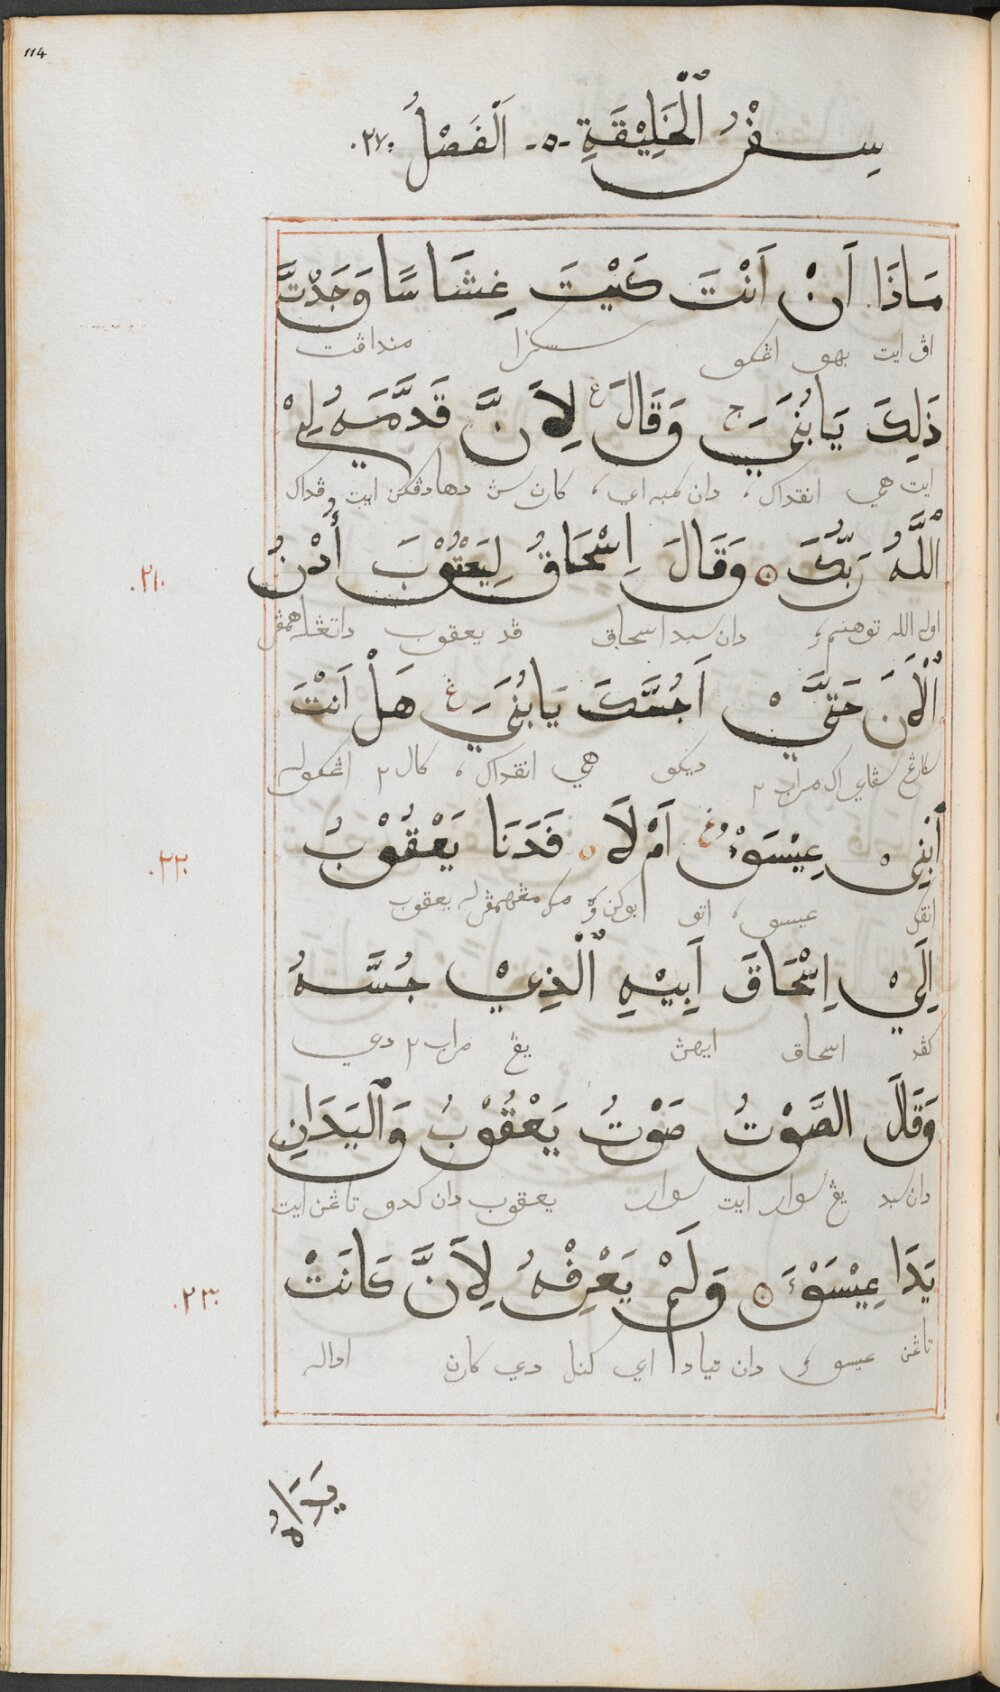 114
سِفْرُ ٱلْخَلِيْقَةِ -٥- اَلْفَصْلُ ٠٢٧٠
مَاذَا اَنْ اَنْتَ كَيْتَ غِشَاسًا وَجَدْتَّ
اڤ ايت بهو اڠكو سكرا منداڤت
ذَلِكَ يَابُنَيَّ ج وَقَالَ ع لِاَنَّ قَدَّمَهُ لِيْ
ايت هي انقداك، دان كات اي، كارن سن دهادڤكن ايت ڤداك
ٱللَّهُ رَبُّكَ ٥ وَقَالَ اِسْحَاقُ لِيَعْقُوْبَ أُدْنُ
٠٢١٠
اوله الله توهنم، دان سبد اسحاق ڤد يعقوب داتڠله همڤر
ٱلْاٰنَ حَتَّيْ اَجُسَّكَ يَابُنَيَّ ع هَلْ اَنْتَ
سكارڠ سڤاي اك مراب٢ ديكو هي انقداك، كال٢ اڠكوله
اَبْنِيْ عِيْسَوْءُ ع اَمْ لَا ٥ فَدَنَا يَعْقُوْبُ
٠٢٢٠
انقك عيسو، اتو بوكن، مك مڠهمڤرله يعقوب
اِلَيْ اِسْحَاقَ اَبِيْهِ ٱلْذِيْ جُسَّهُ
كڤد اسحاق ايهڽ يڠ مراب٢ دي
وَقَلَ الصَّوْتُ صَوْتُ يَعْقُوْبُ وَٱلْيَدَانِ
دان سبد يڠ سوار ايت سوار يعقوب دان كدو تاڠن ايت
يَدَا عِيْسَوْءَ ٥ وَلَمْ يَعْرِفْهُ لِاَنَّ كَانَتْ
٠٢٣٠
تاڠن عيسو، دان تيادا اي كنل دي كارن اداله
يَدَاهُ